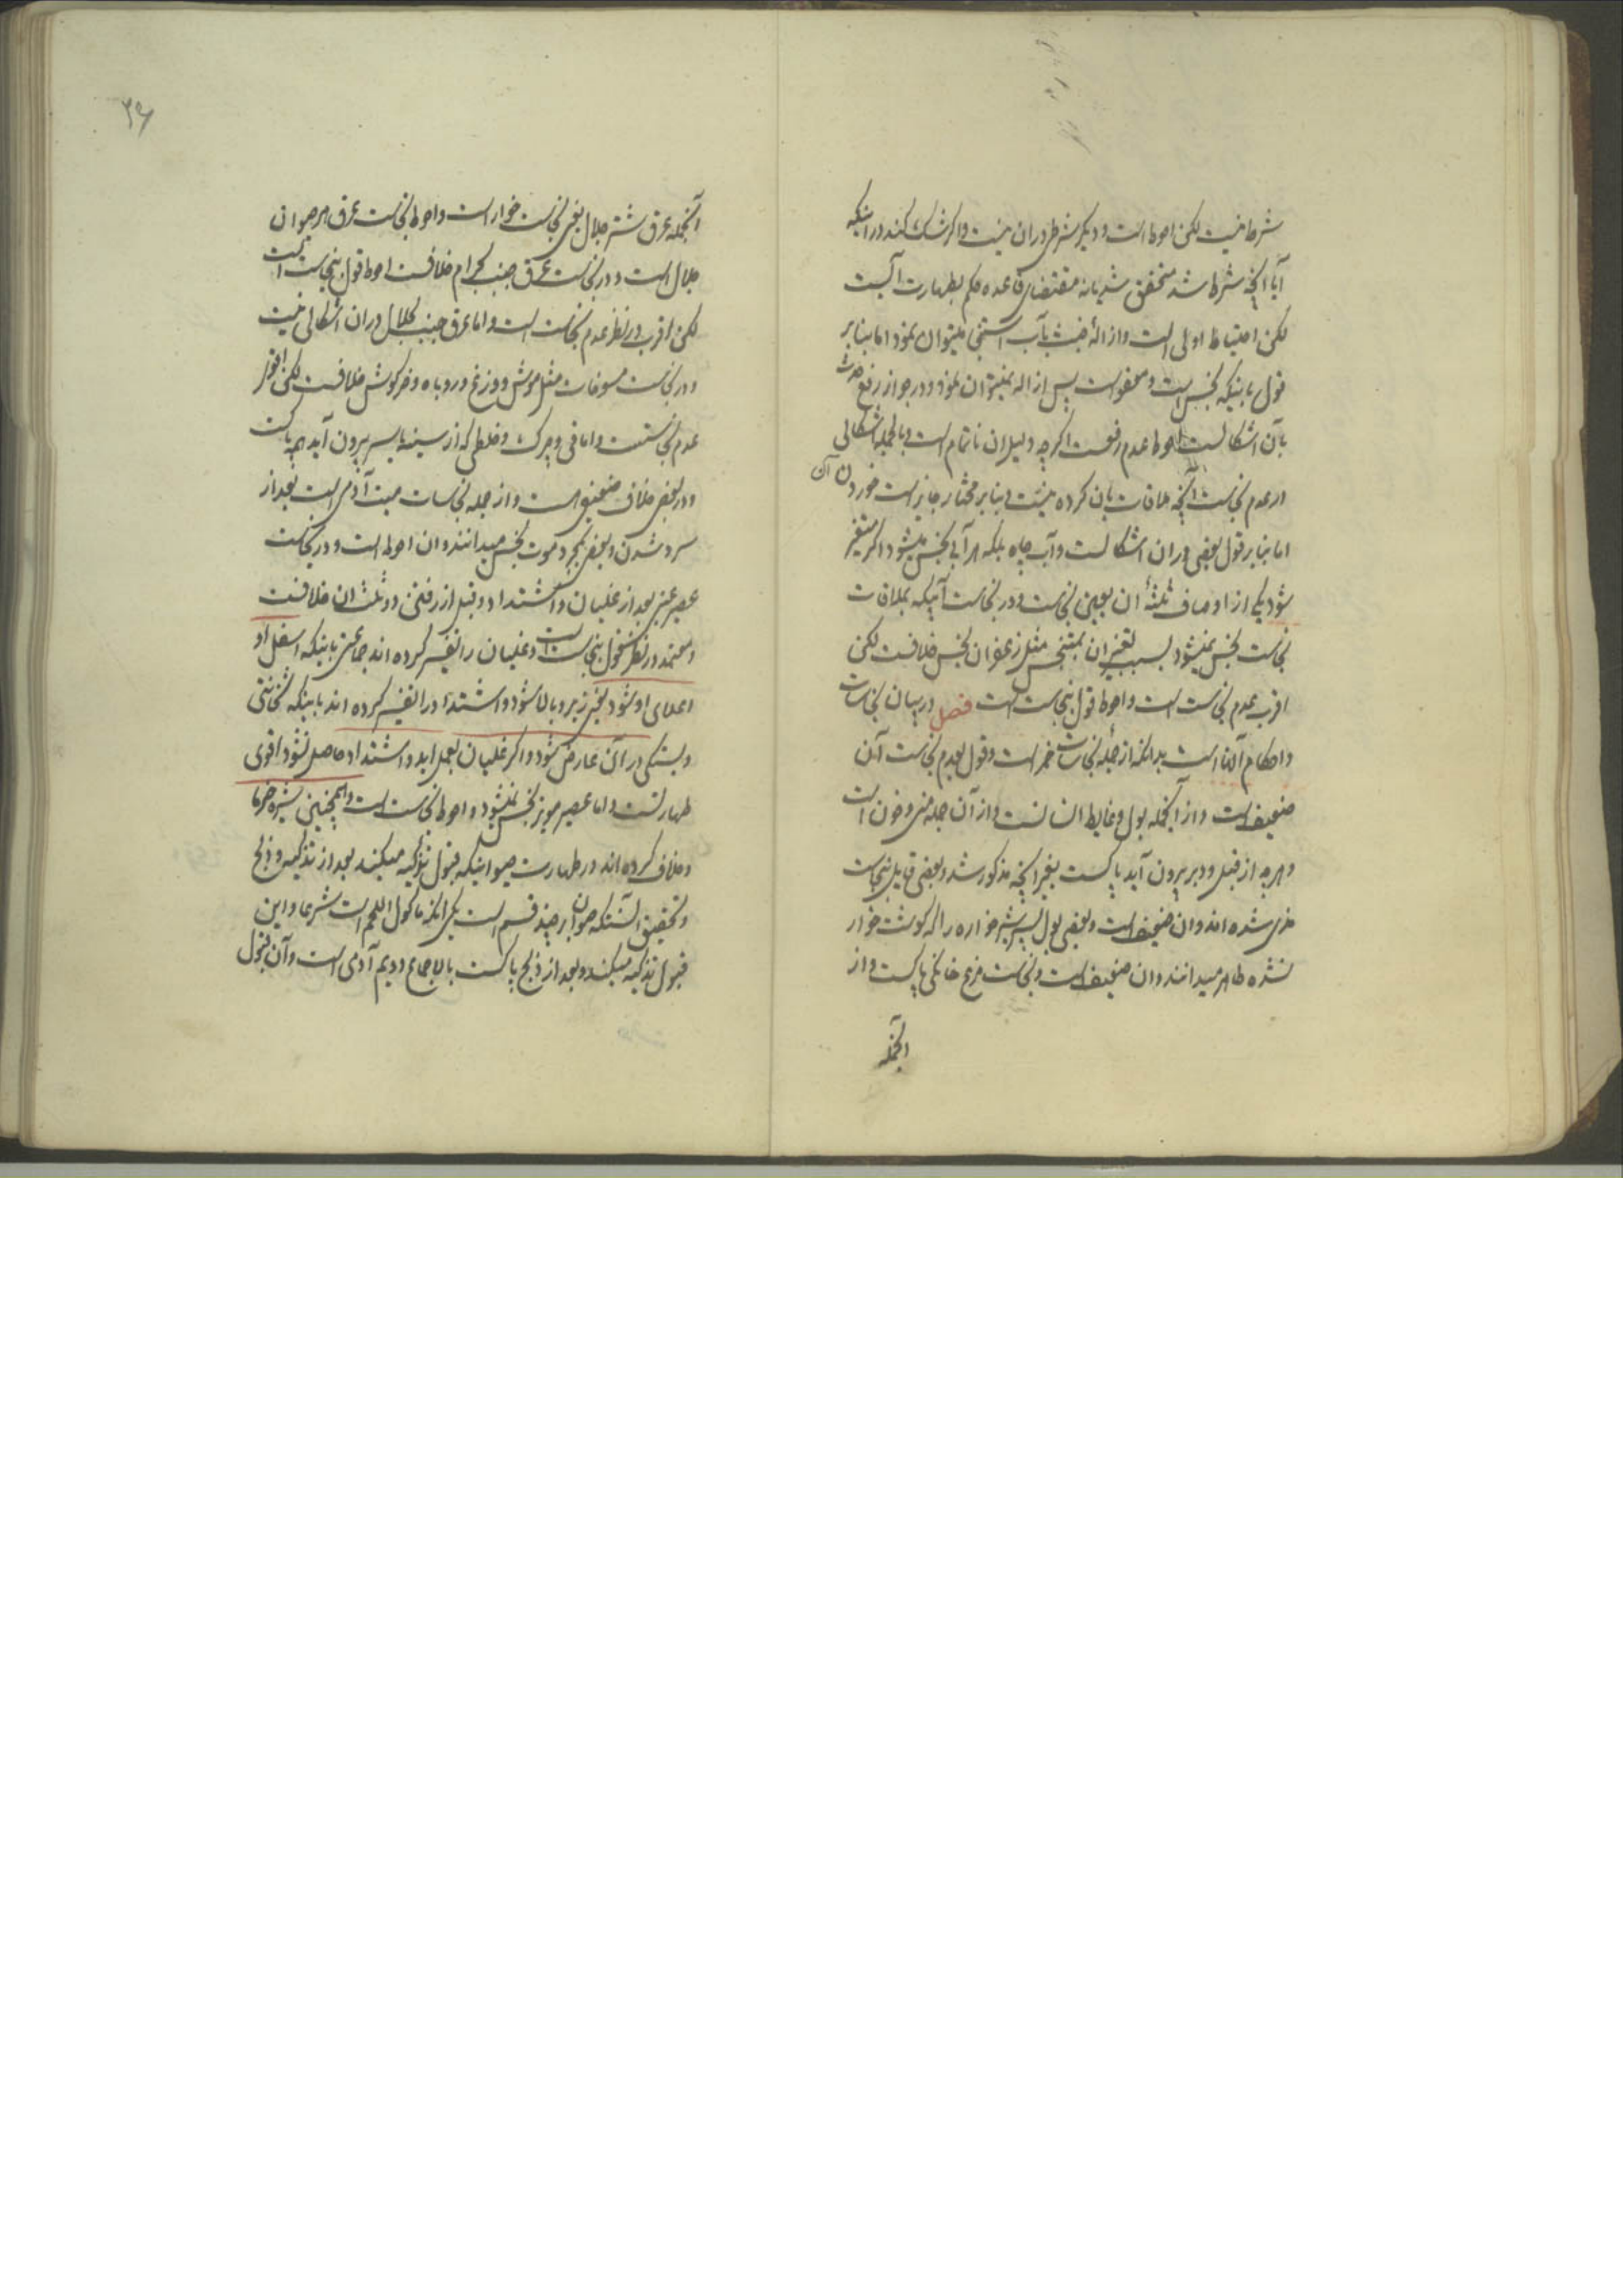 شرط نیست لکن احوط است و دیگر شرطی در ان نیست و اگر شک کند در اینکه
آیا آنچه شرط شد متحقق شد یا نه مقتضای قاعده حکم بطهارت آنست
لکن احتیاط اولی است و ازاله خبث بآب استنجا میتوان نمود اما بنابر
قول باینکه نجس است و معفو است پس ازاله نمیتوان نمود و در جواز رفع حدث
بآن اشکالست احوط عدم رفعست اگرچه دلیل ان ناتمام است و بالجمله اشکالی
در عدم نجاست آنچه ملاقات بان کرده نیست و بنابر مختار جایز است خوردن آن
اما بنابر قول بعضی در ان اشکالست و آب چاه بلکه هر آبی نجس میشود اگر متغیر
شود یکی از اوصاف ثلثهٔ ان بعین نجاست و در نجاست آبیکه بملاقات
نجاست نجس نمیشود بسبب تغیر ان بمتنجس مثل زعفران نجس خلافست لکن
اقرب عدم نجاست است و احوط قول بنجاست است فصل در بیان نجاسات
و احکام آنها است بدانکه از جمله نجاسات خمر است و قول بعدم نجاست آن
ضعیف است و از آنجمله بول و غایط انسانست و از آن جمله منی و خون است
و هرچه از قبل و دبر بیرون آید پاکست بغیر آنچه مذکور شد و بعضی قایل بنجاست
مذی شده اند و ان ضعیف است و بعضی بول پسر شیر خواره را که گوشت خوار
نشده طاهر میدانند و ان ضعیف است و نجاست مرغ خانگی پاکست و از
آنجمله
۳۶
آنجمله عرق شتر جلال یعنی نجاست خوار است و احوط نجاست عرق هر حیوان
جلال است و در نجاست عرق جنب بحرام خلافست احوط قول بنجاست است
لکن اقرب در نظر عدم نجاست است و اما عرق جنب بحلال در ان اشکالی نیست
و در نجاست مسوخات مثل موش و وزغ و روباه و خرگوش خلافست لکن اقوی
عدم نجاستست و اما قی و چرک و خلطی که از سینه یا سر بیرون آید همه پاکست
و در بعضی خلاف ضعیفی است و از جمله نجاسات میت آدمی است بعد از
سرد شدن و بعضی بمجرد موت نجس میدانند و ان احوط است و در نجاست
عصیر عنبی بعد از غلیان و اشتداد و قبل از رفتن دو ثلث ان خلافست
و معتمد در نظر قول بنجاست است و غلیان را تفسیر کرده اند جماعتی باینکه اسفل او
اعلای او شود یعنی زیر و بالا شود و اشتداد را تفسیر کرده اند باینکه ثخانتی
و بستگی در آن عارض شود و اگر غلیان بعمل اید و اشتداد حاصل نشود اقوی
طهارتست و اما عصیر مویز نجس نمیشود و احوط نجاست است و همچنین شیره خرما
و خلاف کرده اند در طهارت حیوانیکه قبول تذکیه میکند بعد از تذکیه و ذبح
و تحقیق آنستکه حیوان بر چند قسم است یکی آنکه ماکول اللحم است شرعا و این
قبول تذکیه میکند و بعد از ذبح پاکست بالاجماع دویم آدمی است و آن قبول